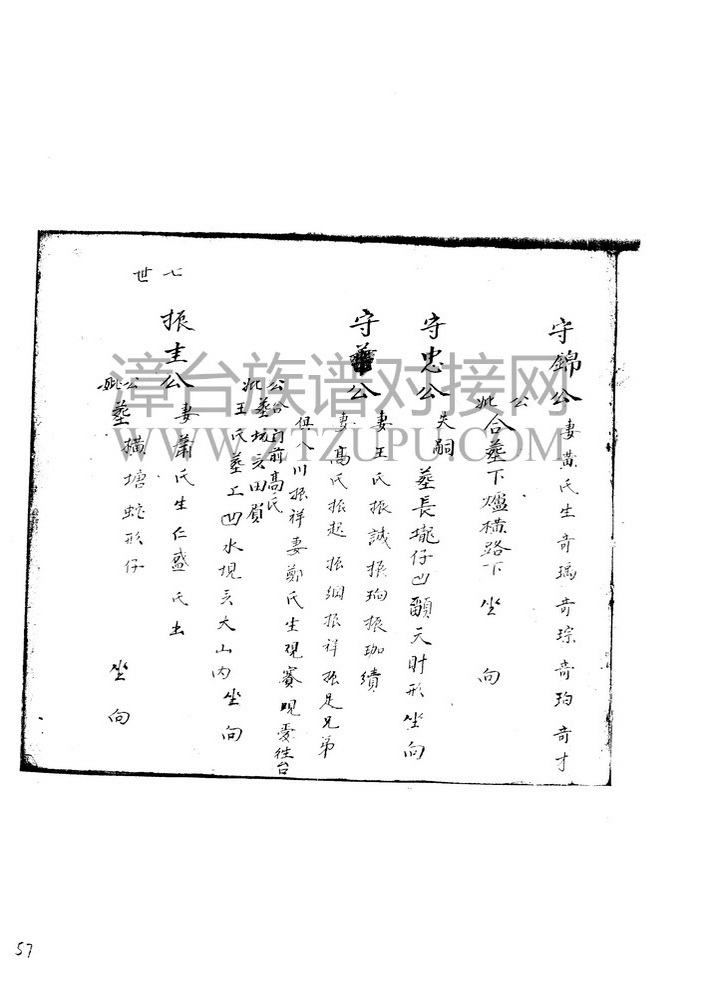 守錦公妻黃氏生奇璃奇琮奇珣奇才
公妣合墓下爐橫路下 坐 向
守忠公失嗣 墓長壠仔凹顧天財形坐向
妻王氏振誠振珣振珈續
守公妻高氏振起振綱振祥振足兄弟
俱入川振祥妻鄭氏生現賽現憂往台
公合前高氏
妣墓坑云田
王氏墓工凹水坝大山內坐向
七世
振圭公妻蕭氏生仁盛氏出
公妣墓橫塘蛇形仔 坐 向
漳台族谱对接网
WWW.ZTZUPU.COM
57